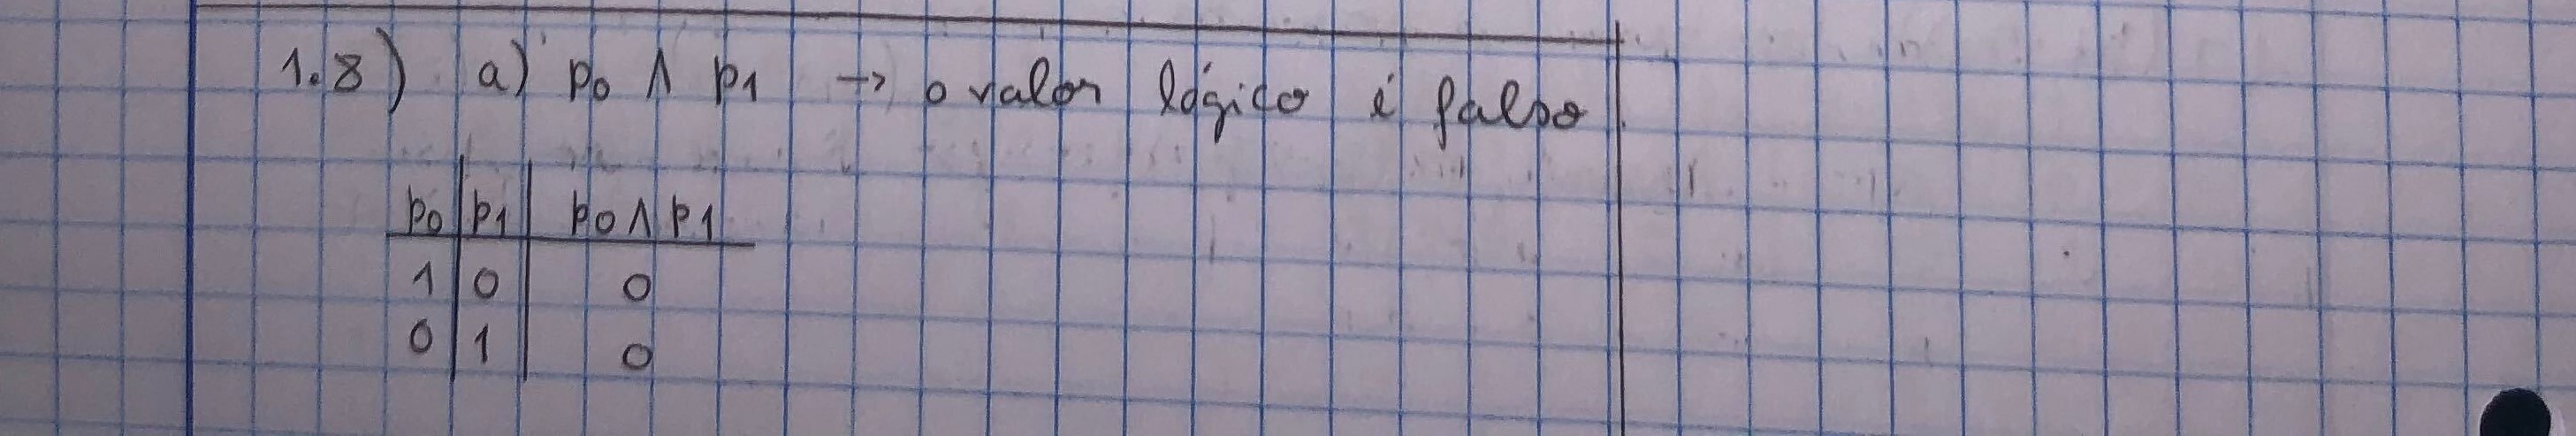 1.8) a) p0 ∧ p1 → o valor lógico é falso.
p0 | p1 | p0 ∧ p1
1 | 0 | 0
0 | 1 | 0